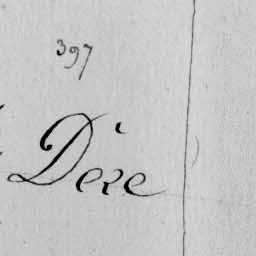 397
Dèxe